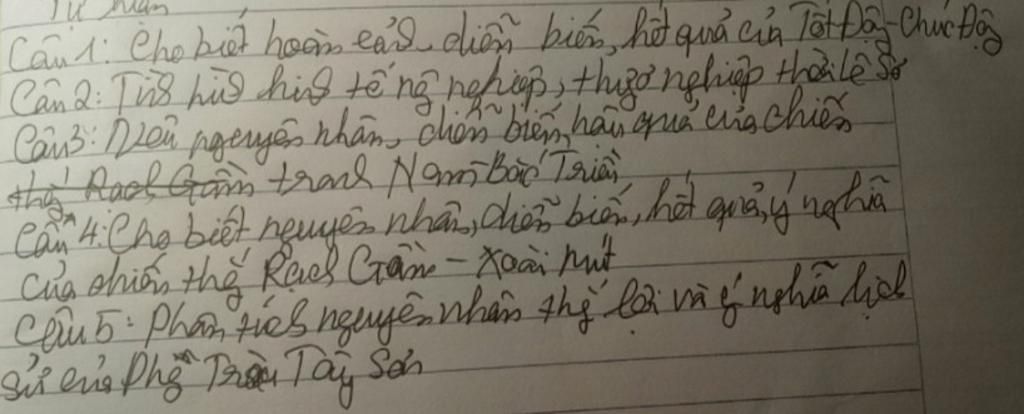 Tự luận
Câu 1: Cho biết hoàn cảnh, diễn biến, kết quả của Tốt Động - Chúc Động
Câu 2: Tình hình kinh tế nông nghiệp, thương nghiệp thời Lê Sơ
Câu 3: Nêu nguyên nhân, diễn biến, hậu quả của chiến
tranh Nam Bắc Triều
Câu 4: Cho biết nguyên nhân, diễn biến, kết quả, ý nghĩa
của chiến thắng Rạch Gầm - Xoài Mút
Câu 5: Phân tích nguyên nhân thắng lợi và ý nghĩa lịch
sử của Phong Trào Tây Sơn